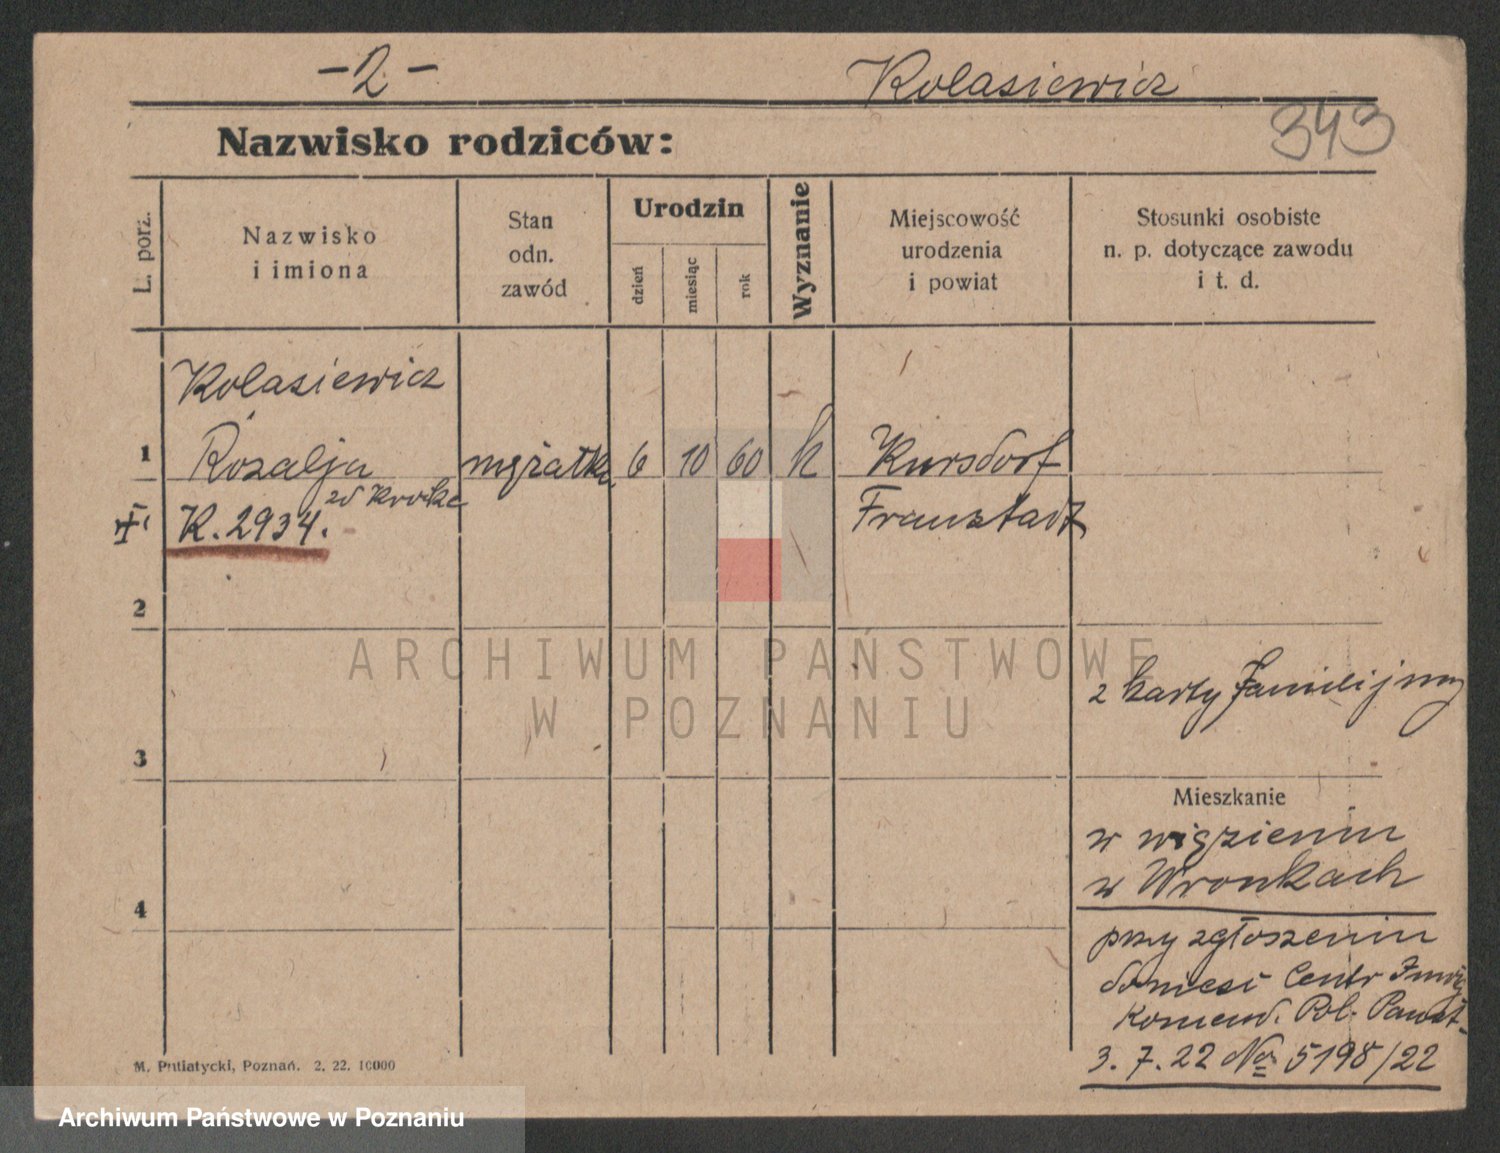 -2-
Kolasiewicz
343
Nazwisko rodziców:
L. porz.
Nazwisko
i imiona
Stan
odn.
zawód
Urodzin
dzień
miesiąc
rok
Wyznanie
Miejscowość
urodzenia
i powiat
Stosunki osobiste
n. p. dotyczące zawodu
i t. d.
Kolasiewicz
1 Rozalja mężatka 6 10 60 k Kursdorf
K. 2934. Fraustadt
2
ARCHIWUM PAŃSTWOWE
W POZNANIU
z karty familijnej
3
Mieszkanie
w więzieniu
w Wronkach
4
przy zgłoszeniu
donieść Centr
Komend. Pol. Państ.
3. 7. 22 No 5198/22
M. Putiatycki, Poznań. 2. 22. 10000
Archiwum Państwowe w Poznaniu